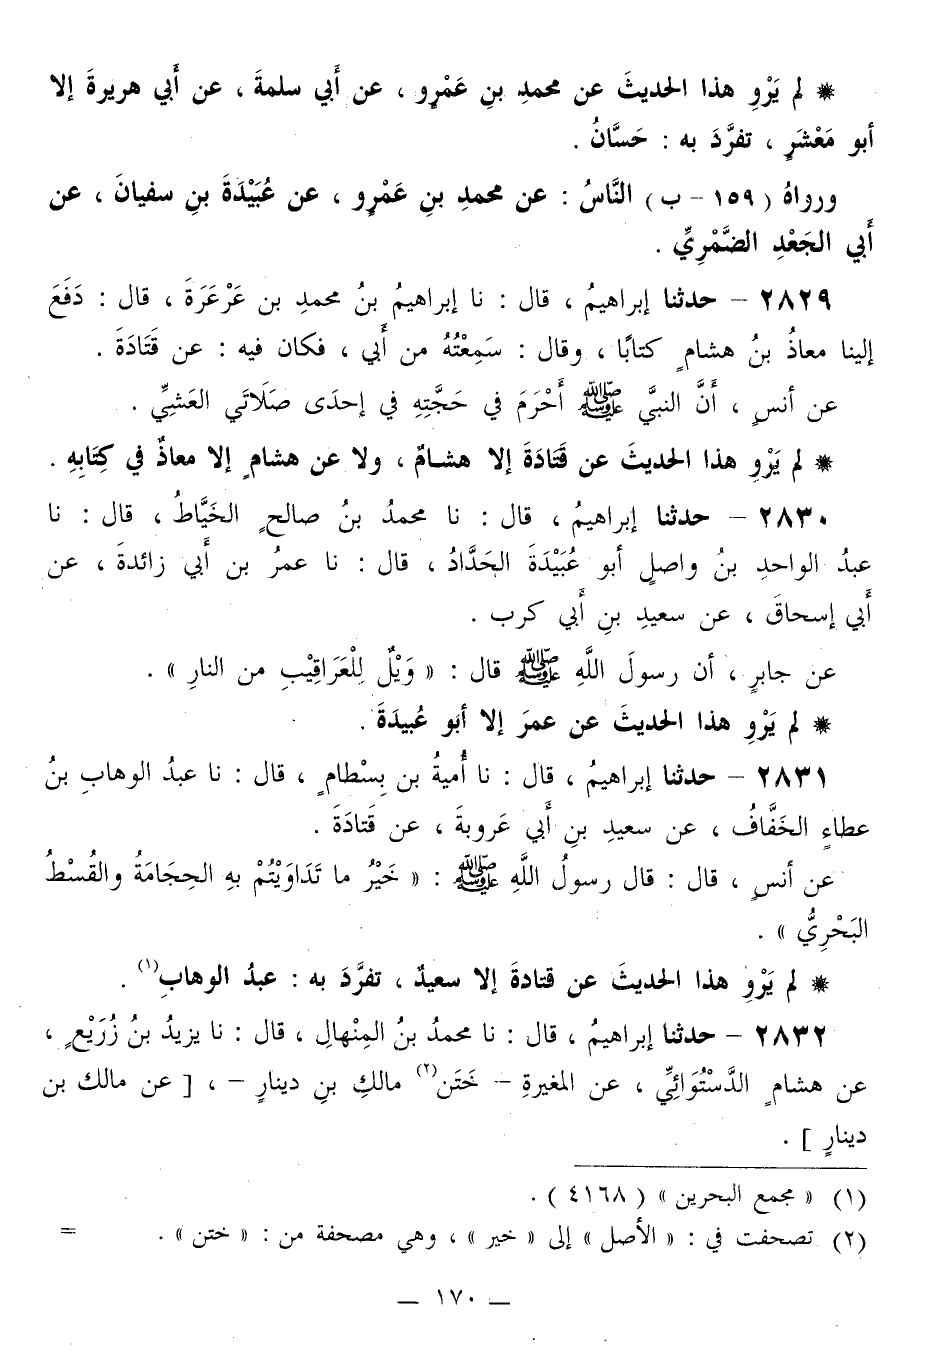 * لم يَرْوِ هذا الحديثَ عن محمدِ بنِ عَمْرٍو ، عن أَبي سلمةَ ، عن أَبي هريرةَ إلا
أبو مَعْشَرٍ ، تفرَّدَ به : حَسَّانُ .
ورواهُ ( ١٥٩ - ب ) النَّاسُ : عن محمدِ بنِ عَمْرٍو ، عن عُبَيْدَةَ بنِ سفيانَ ، عن
أَبي الجَعْدِ الضَّمْرِيِّ .
٢٨٢٩ - حدثنا إبراهيمُ ، قال : نا إبراهيمُ بنُ محمدِ بن عَرْعَرَةَ ، قال : دَفَعَ
إلينا معاذُ بنُ هشامٍ كتابًا ، وقال : سَمِعْتُهُ من أَبي ، فكان فيه : عن قَتَادَةَ .
عن أنسٍ ، أَنَّ النبيَّ ﷺ أَحْرَمَ في حَجَّتِهِ في إحدَى صَلَاتَي العَشِيِّ .
* لم يَرْوِ هذا الحديثَ عن قَتَادَةَ إلا هشامٌ ، ولا عن هشامٍ إلا معاذٌ في كِتَابِهِ .
٢٨٣٠ - حدثنا إبراهيمُ ، قال : نا محمدُ بنُ صالحٍ الخَيَّاطُ ، قال : نا
عبدُ الواحدِ بنُ واصلٍ أبو عُبَيْدَةَ الحَدَّادُ ، قال : نا عمرُ بن أَبي زائدةَ ، عن
أَبي إسحاقَ ، عن سعيدِ بنِ أَبي كرب .
عن جابرٍ ، أن رسولَ اللَّهِ ﷺ قال : « وَيْلٌ لِلْعَرَاقِيْبِ من النارِ » .
* لم يَرْوِ هذا الحديثَ عن عمرَ إلا أبَو عُبيدَةَ .
٢٨٣١ - حدثنا إبراهيمُ ، قال : نا أُميةُ بن بِسْطامٍ ، قال : نا عبدُ الوهابِ بنُ
عطاءٍ الخَفَّافُ ، عن سعيدِ بنِ أَبي عَروبةَ ، عن قَتادَةَ .
عن أنسٍ ، قال : قال رسولُ اللَّهِ ﷺ : « خَيْرُ ما تَدَاوَيْتُمْ بهِ الحِجَامَةُ والقُسْطُ
البَحْرِيُّ » .
* لم يَرْوِ هذا الحديثَ عن قتادةَ إلا سعيدٌ ، تفرَّدَ به : عبدُ الوهابِ(١) .
٢٨٣٢ - حدثنا إبراهيمُ ، قال : نا محمدُ بنُ المِنْهالِ ، قال : نا يزيدُ بنُ زُرَيْعٍ ،
عن هشامٍ الدَّسْتُوَائِيِّ ، عن المغيرةِ - خَتَن(٢) مالكِ بنِ دينارٍ - ، [ عن مالك بن
دينارٍ ] .
(١) « مجمع البحرين » ( ٤١٦٨ ) .
(٢) تصحفت في : « الأصل » إلى « خير » ، وهي مصحفة من : « ختن » . =
— ١٧٠ —